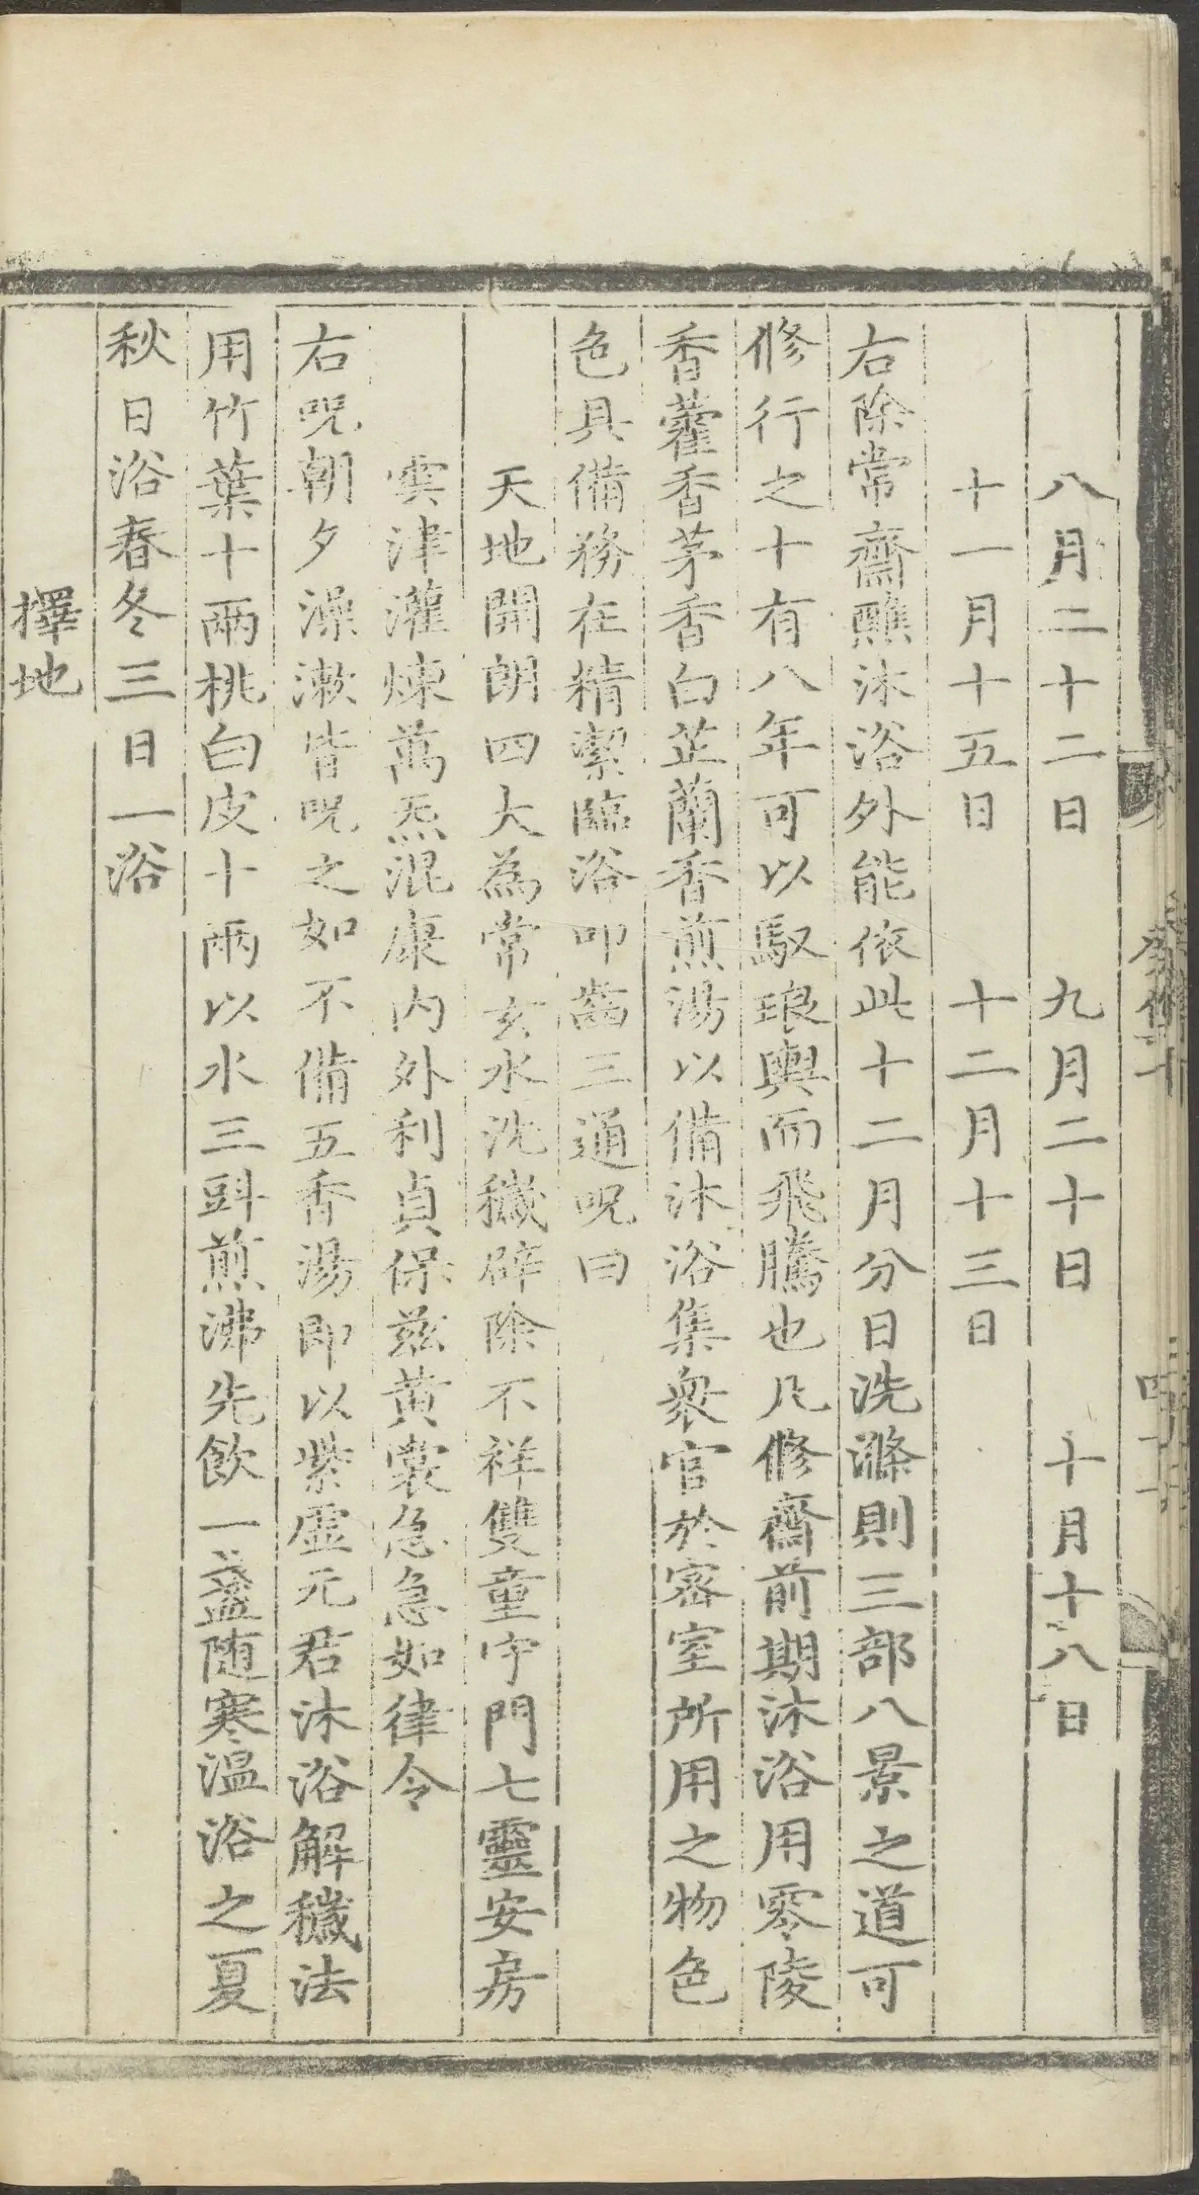 八月二十二日　九月二十日　十月十八日
十一月十五日　十二月十三日
右除常齋醮沐浴外能依此十二月分日洗滌則三部八景之道可
修行之十有八年可以馭琅輿而飛騰也凡修齋前期沐浴用零陵
香藿香茅香白芷蘭香煎湯以備沐浴集衆官於密室所用之物色
色具備務在精潔臨浴叩齒三通呪曰
天地開朗四大為常玄水洗穢辟除不祥雙童守門七靈安房
雲津灌煉萬炁混康內外利貞保茲黃裳急急如律令
右呪朝夕澡漱皆呪之如不備五香湯即以紫虛元君沐浴解穢法
用竹葉十兩桃白皮十兩以水三㪷煎沸先飲一盞随寒温浴之夏
秋日浴春冬三日一浴
擇地